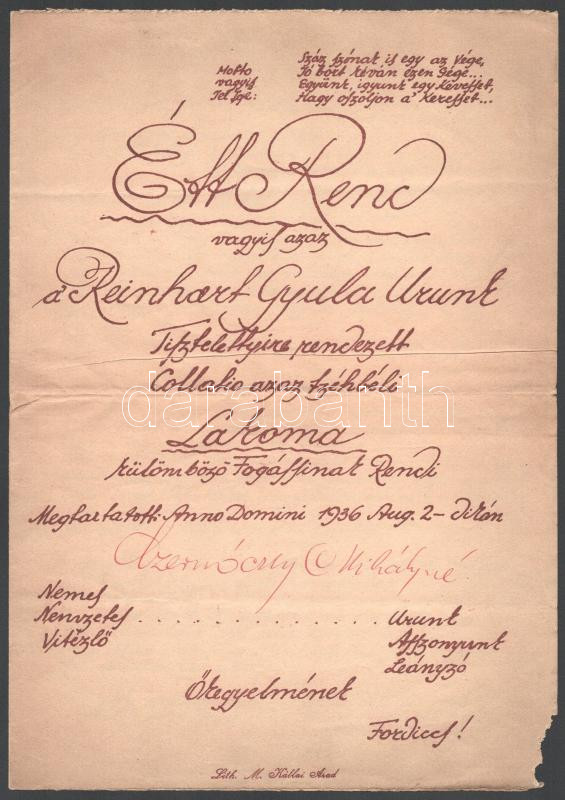 Motto
vagyis
Jel Ige:
Száz szónak is egy az Vége,
Jó bort kéván ezen Gége...
Együnk, igyunk egy Kévesset,
Hagy oszoljon a' Keresset...
Étt Rend
vagyis azaz
a' Reinhart Gyula Urunk
Tisztelettyire rendezett
Collatio azaz széhbéli
Lakoma
külömböző Fogássinak Rendi
Megtartatott: Anno Domini 1936 Aug. 2-dikán
Mihályné
Nemes
Nemzetes . . . . . . . . . . . . . Urunk
Vitézlő
Asszonyunk
Leányzó
Őkegyelmének
Fordiccs!
Lith. M. Kállai Arad
darabanth